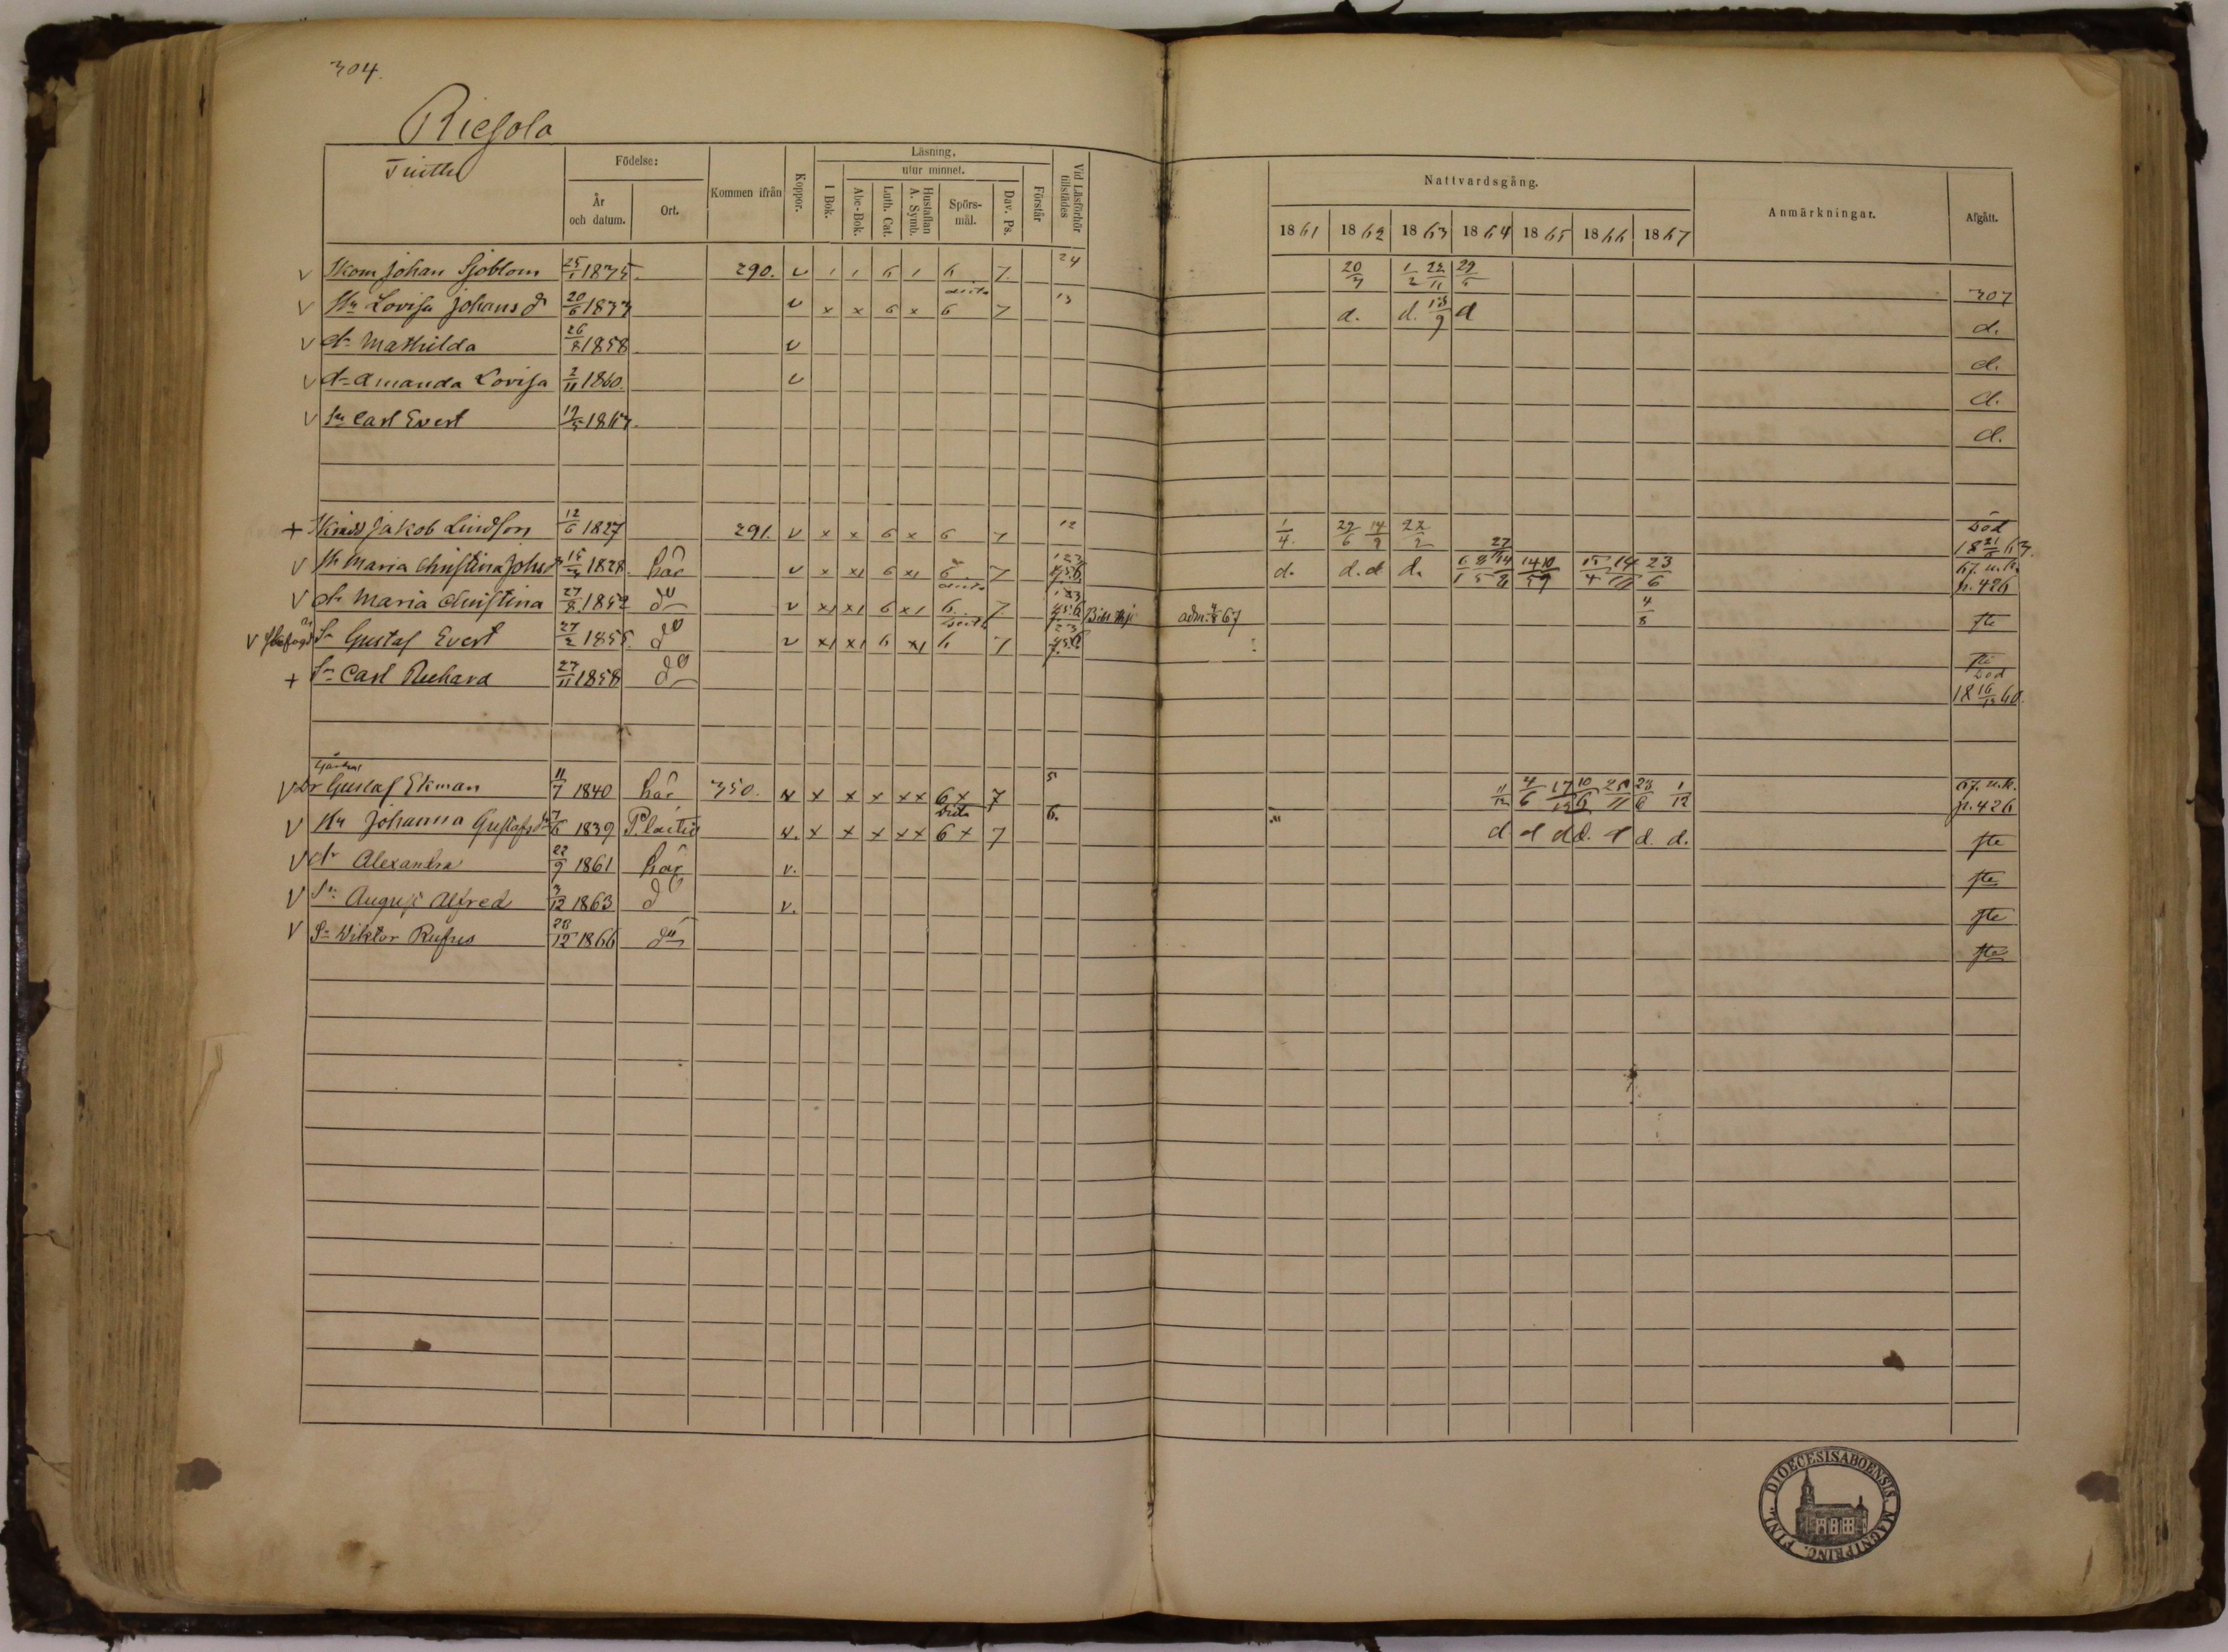 304.
Riesola
Tuittu
Födelse:
År och datum.
Ort.
Kommen ifrån
Koppor.
Läsning,
I Bok.
utur minnet.
Abc-Bok.
Luth. Cat.
Hustaflan A. Symb.
Spörs-mål.
Dav. Ps.
Förstår
Vid Läsförhör tillstädes
Nattvardsgång.
1861 1862 1863 1864 1865 1866 1867
Anmärkningar.
Afgått.
v Skom Johan Sjöblom 25/1 1835. 290. v 1 1 6 1 6 7. 24 20/3 1/2 22/11 29/5 307
v Hu Lovisa Johans dr 20/6 1833 v x x 6 x 6 7 13 d. d. 13/9 d d.
v dr Mathilda 26/8 1858 v d.
v dr Amanda Lovisa 2/11 1860. v d.
v Sn Carl Evert 19/5 1863. d.
+ Jakob Lindfors 12/6 1827 291. v x x 6 x 6 7 12 1/4. 22/6 14/9 22/2 Död 18 21/6 63.
v Hu Maria Christina Johs dr 15/3 1828. här v x x1 6 x1 6 7 d. d. d. d. 23/6 67. u.k. p. 426
v dr Maria Christina 27/8 1852 do v x1 x1 6 x1 6 7 adm. 4/8 67 4/8 fte
v Sn Gustaf Evert 27/2 1855. do v x1 x1 6 x1 6 7 fte
+ Sn Carl Richard 27/11 1858 do Död 18 16/12 60.
v Dr Gustaf Ekman 11/7 1840 här 350. x x x x xx 6x 7 5 11/12 4/6 17/12 10/6 25/11 23/6 1/12 67. u.k. p. 426
v Hu Johanna Gustafs dr 7/6 1839 Plaitis x. x x x xx 6x 7 6. d d d d. d d. d. fte
v dr Alexandra 22/9 1861 här v. fte
v Sn August Alfred 3/12 1863 do v. fte
v Sn Wiktor Rufus 28/12 1866 do fte
DIOECESIS ABOENSIS. MAGNI PRINC. FINL.